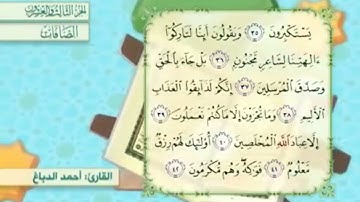 الجزء الثالث والعشرون
الصافات
يَسْتَكْبِرُونَ ٣٥ وَيَقُولُونَ أَئِنَّا لَتَارِكُوا
ءَالِهَتِنَا لِشَاعِرٍ مَّجْنُونٍ ٣٦ بَلْ جَاءَ بِالْحَقِّ
وَصَدَّقَ الْمُرْسَلِينَ ٣٧ إِنَّكُمْ لَذَائِقُوا الْعَذَابِ
الْأَلِيمِ ٣٨ وَمَا تُجْزَوْنَ إِلَّا مَا كُنتُمْ تَعْمَلُونَ ٣٩
إِلَّا عِبَادَ اللَّهِ الْمُخْلَصِينَ ٤٠ أُولَٰئِكَ لَهُمْ رِزْقٌ
مَّعْلُومٌ ٤١ فَوَاكِهُ وَهُم مُّكْرَمُونَ ٤٢
القارئ: أحمد الدباغ